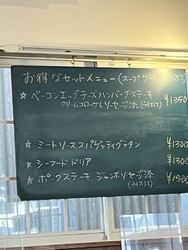 お得なセットメニュー(スープサ
☆ベーコンエッグチーズハンバーグステーキ
クリームコロッケとソーセージ添(ライスつき) ¥1350
☆ミートソーススパゲッティグラタン ¥1300
☆シーフードドリア ¥1300
☆ポークステーキ ジャンボソーセージ添 ¥1500
(ライスつき)